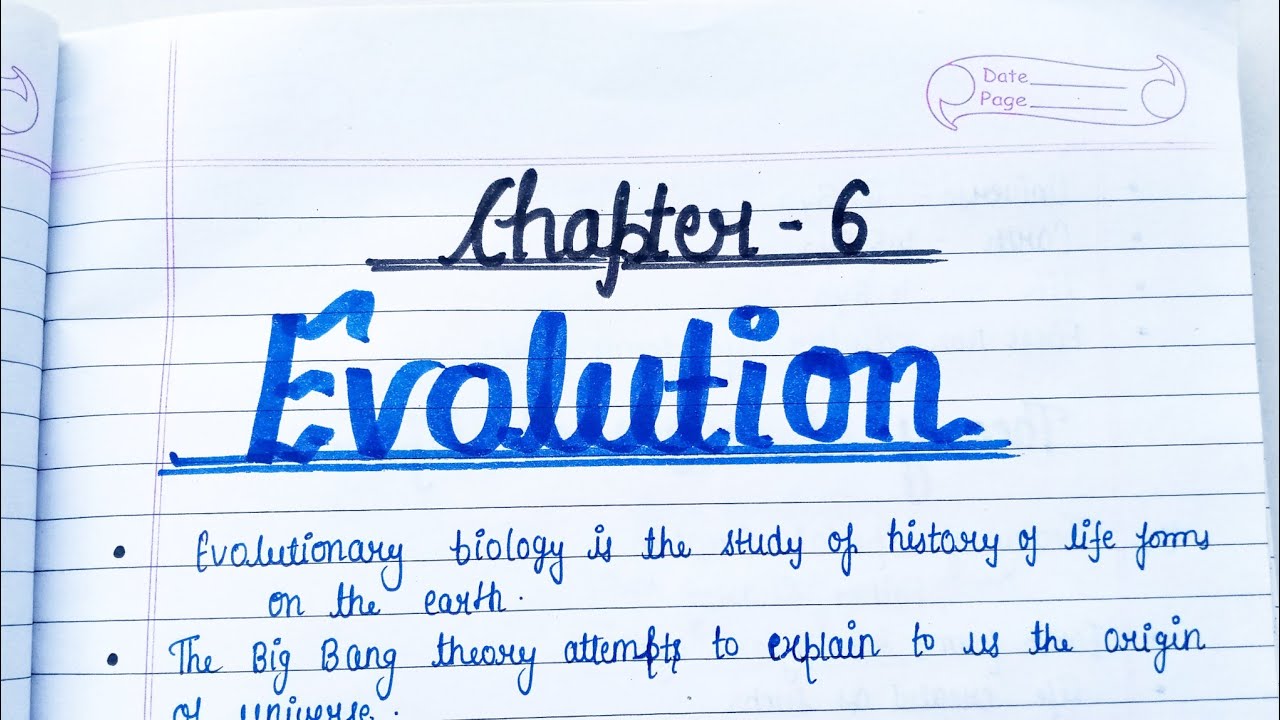 Date
Page
Chapter - 6
Evolution
• Evolutionary biology is the study of history of life forms
on the earth.
• The Big Bang theory attempts to explain to us the origin
of universe.